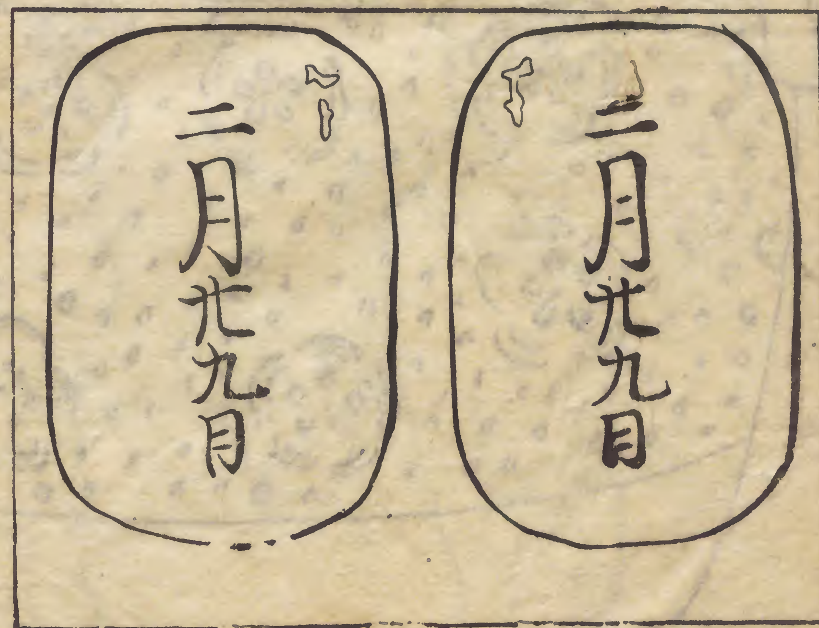 二月廿九日
二月廿九日